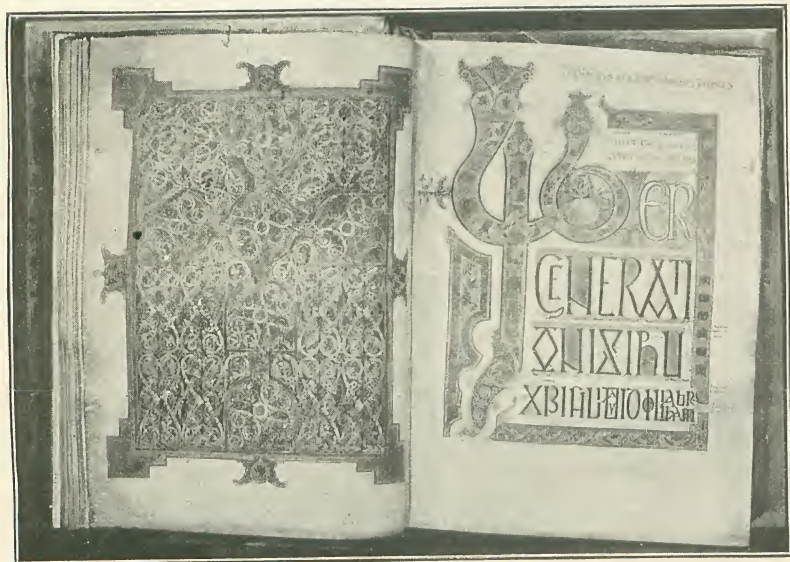 LIBER
GENERATI
ONIS IHU
XPI FILII DAVID FILII ABRAHAM